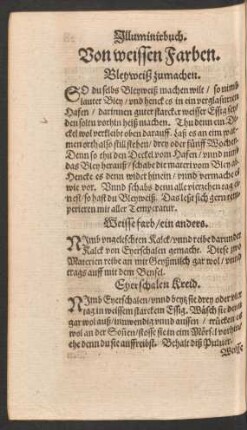 Illuminirbuch.
Von weissen Farben.
Bleyweiß zumachen.
SO du selbs Bleyweiß machen wilt / so nimb
lauter Bley / vnd henck es in ein verglasurten
Hafen / darinnen guter starcker weisser Essig sey /
den soltu vorhin heiß machen. Thu denn ein De-
ckel wol verkleibt oben darauff. Laß es an eim war-
men orth also still stehen / drey oder fünff Wochen.
Denn so thu den Deckel vom Hafen / vnnd nimb
das Bley herauß / schabe die materi vom Bley ab /
Hencke es denn wider hinein / vnnd vermache es
wie vor. Vnnd schabs denn alle vierzehen tag
so hast du Bleyweiß. Das leßt sich gern tem-
perieren mit aller Temperatur.
Weisse farb / ein anders.
NImb vngeleschten Kalck / vnnd reibe darunder
Kalck von Eyerschalen gemacht. Diese zwo
Materien reibe an mit Geyßmilch gar wol / vnnd
trags auff mit dem Bensel.
Eyerschalen Kreid.
NImb Eyerschalen / vnnd beytz sie drey oder vier
tag in weissem starckem Essig. Wäsch sie denn
gar wol auß / inwendig vnnd aussen / trückne es
wol an der Sonnen / stosse sie in eim Mörsel
ehe denn du sie auffreibst. Behalt diß Puluer.
Weisse